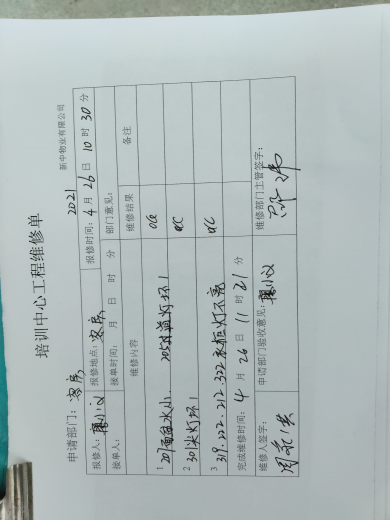 培训中心工程维修单
新中物业有限公司
申请部门：客房
2021
报修人： 报修地点：客房 报修时间：4月26日10时30分
接单人： 接单时间： 月 日 时 分 部门意见：
维修内容 维修结果 备注
1 201面盆水小. 205过道灯坏1 OK
2 301尖灯坏1 OK
3 319.222.212.322衣柜灯不亮 OK
完成维修时间：4月26日11时21分
维修人签字： 申请部门验收意见： 维修部门主管签字：